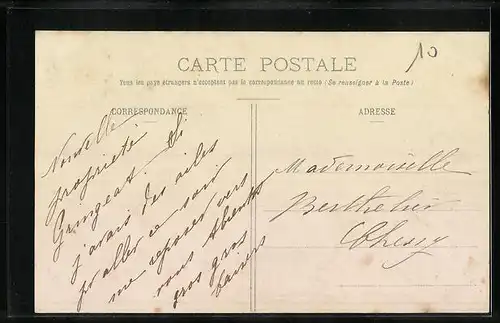 10
CARTE POSTALE
Tous les pays étrangers n'acceptent pas la correspondance au recto (Se renseigner à la Poste)
CORRESPONDANCE
Nouvelle
propriété
Grangeat. Si
j'avais des ailes
pr aller ce soir
me reposer vers
vous. Bientôt
gros gros
baisers
ADRESSE
Mademoiselle
Berthelier
Chessy